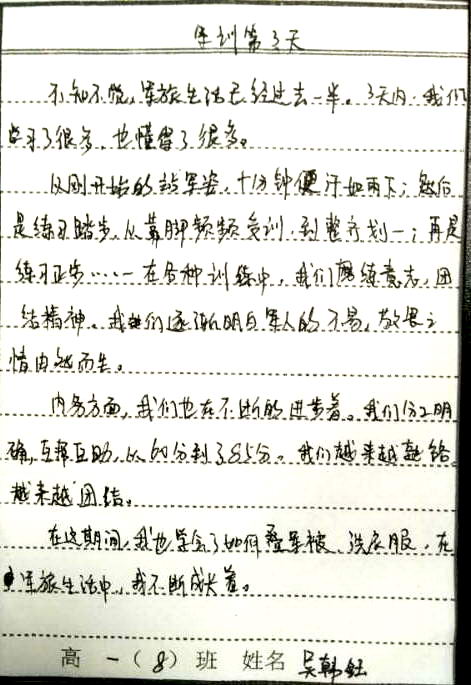 军训第3天
不知不觉，军旅生活已经过去一半。3天内，我们
学习了很多，也懂得了很多。
从刚开始的站军姿，十分钟便汗如雨下；然后
是练习踏步，从靠脚频频受训，到整齐划一；再是
练习正步……在各种训练中，我们磨练意志，团
结精神。我们逐渐明白军人的不易，敬畏之
情由然而生。
内务方面，我们也在不断的进步着。我们分工明
确，互帮互助，从60分到了85分。我们越来越融洽
越来越团结。
在这期间，我也学会了如何叠军被，洗衣服，在
军旅生活中，我不断成长着。
高一（8）班 姓名 吴韩钰